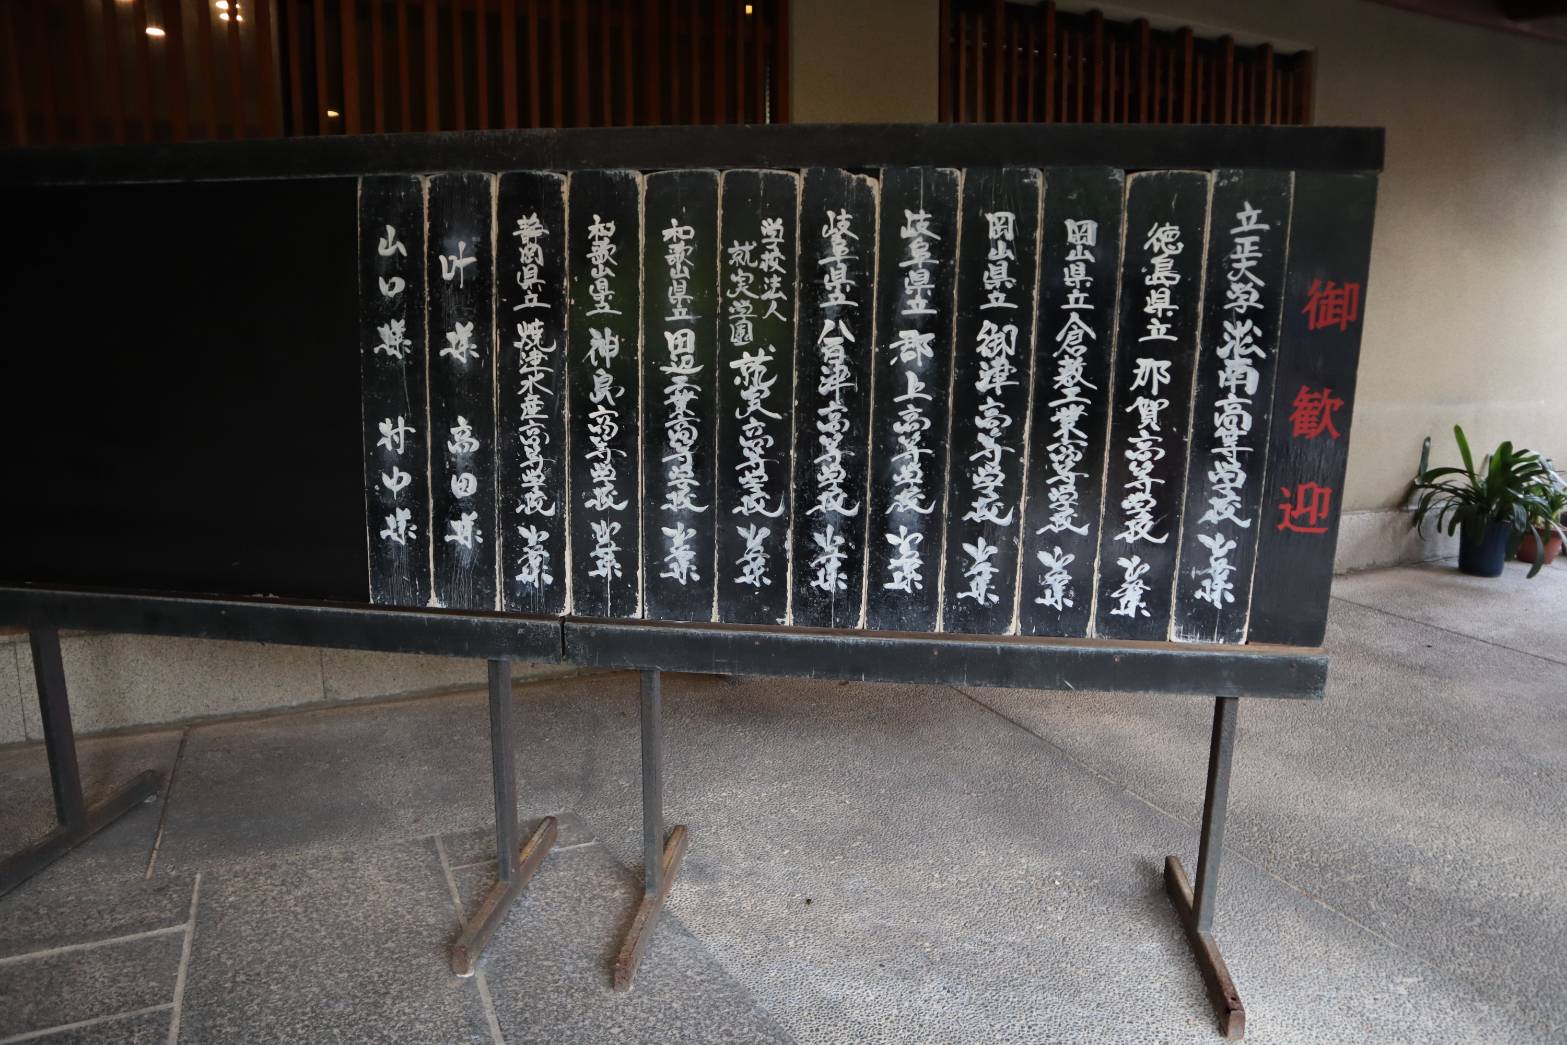 御歓迎
立正大学淞南高等学校 様
徳島県立 那賀高等学校 様
岡山県立倉敷工業高等学校 様
岡山県立 御津高等学校 様
岐阜県立 郡上高等学校 様
岐阜県立 八百津高等学校 様
学校法人
就実学園 就実高等学校 様
和歌山県立 田辺工業高等学校 様
和歌山県立 神島高等学校 様
静岡県立 焼津水産高等学校 様
叶 様 高田 様
山口 様 村中 様